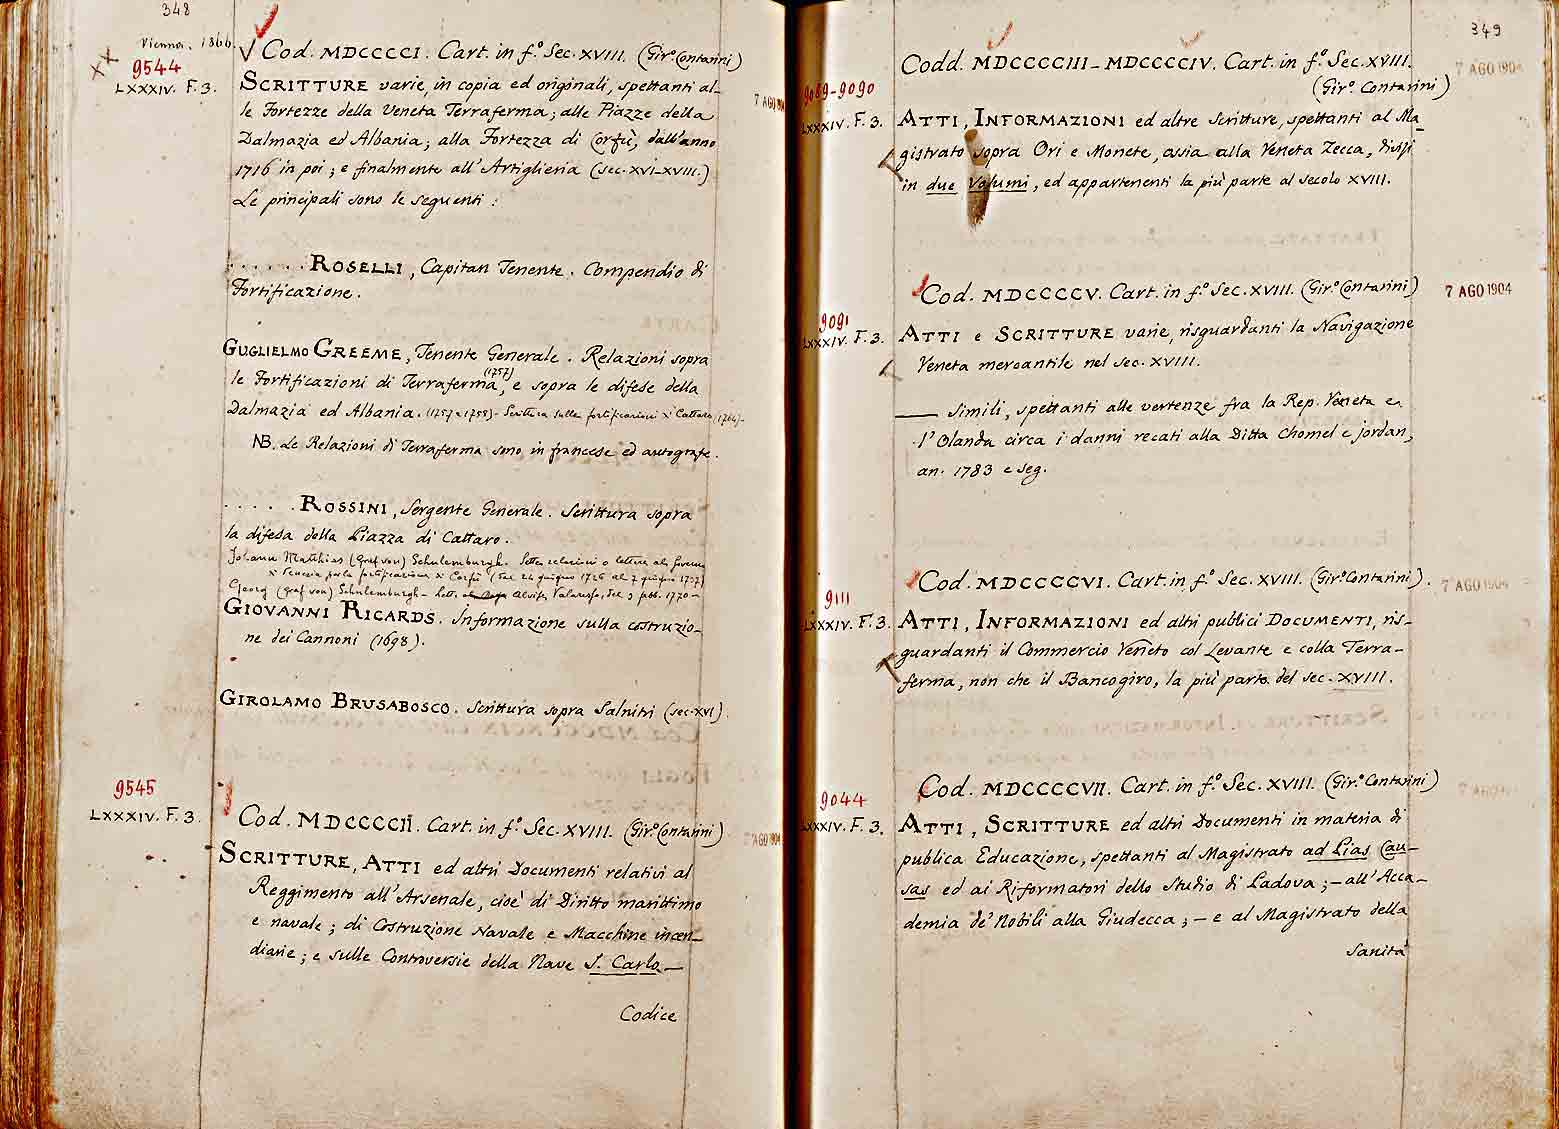 348
Vienna. 1866.
√ Cod. MDCCCCI. Cart. in f.º Sec. XVIII. (Girº Contarini)
XX
9544
LXXXIV. F. 3.
SCRITTURE varie, in copia ed originali, spettanti al-
le Fortezze della Veneta Terraferma; alle Piazze della
7 AGO 1904
Dalmazia ed Albania; alla Fortezza di Corfù, dall'anno
1716 in poi; e finalmente all'Artiglieria (sec. XVI-XVIII.)
Le principali sono le seguenti:
. . . . . . ROSELLI, Capitan Tenente. Compendio di
Fortificazione.
GUGLIELMO GREEME, Tenente Generale. Relazioni sopra
le Fortificazioni di Terraferma (1757), e sopra le difese della
Dalmazia ed Albania. (1757 e 1758) - Scrittura sulle fortificazioni di Cattaro (1764)-
NB. Le Relazioni di Terraferma sono in francese ed autografe.
. . . . . ROSSINI, Sergente Generale. Scrittura sopra
la difesa della Piazza di Cattaro.
Johann Matthias (Graf von) Schulemburgh. Sette relazioni o lettere al
di Venezia per la fortificazione di Corfù (dal 24 giugno 1726 al 7 giugno 17)
Georg (graf von) Schulemburgh - Lett. Alvise Valaresso, del 9 febb. 1770 -
GIOVANNI RICARDS. Informazione sulla costruzio-
ne dei Cannoni (1698).
GIROLAMO BRUSABOSCO. Scrittura sopra Salnitri (sec. XVI)
9545
LXXXIV. F. 3.
Cod. MDCCCCII. Cart. in f.º Sec. XVIII. (Girº Contarini)
7 AGO 1904
SCRITTURE, ATTI ed altri Documenti relativi al
Reggimento all'Arsenale, cioè di Diritto marittimo
e navale; di Costruzione Navale e Macchine incen-
diarie; e sulle Controversie della Nave S. Carlo —
Codice
349
Codd. MDCCCCIII - MDCCCCIV. Cart. in f.º Sec. XVIII.
7 AGO 1904
(Girº. Contarini)
9089-9090
LXXXIV. F. 3.
ATTI, INFORMAZIONI ed altre Scritture, spettanti al Ma-
gistrato sopra Ori e Monete, ossia alla Veneta Zecca, divisi
in due Volumi, ed appartenenti la più parte al secolo XVIII.
Cod. MDCCCCV. Cart. in f.º Sec. XVIII. (Girº Contarini)
7 AGO 1904
9091
LXXXIV. F. 3.
ATTI e SCRITTURE varie, risguardanti la Navigazione
Veneta mercantile nel sec. XVIII.
—— Simili, spettanti alle vertenze fra la Rep. Veneta e
l'Olanda circa i danni recati alla Ditta Chomel e Jordan,
an. 1783 e seg.
Cod. MDCCCCVI. Cart. in f.º Sec. XVIII. (Girº Contarini).
7 AGO 1904
9111
LXXXIV. F. 3.
ATTI, INFORMAZIONI ed altri publici DOCUMENTI, ris-
guardanti il Commercio Veneto col Levante e colla Terra-
ferma, non che il Bancogiro, la più parte del sec. XVIII.
Cod. MDCCCCVII. Cart. in f.º Sec. XVIII. (Girº Contarini)
7 AGO
9044
LXXXIV. F. 3.
ATTI, SCRITTURE ed altri Documenti in materia di
publica Educazione, spettanti al Magistrato ad Pias Cau-
sas ed ai Riformatori dello Studio di Padova; — all'Acca-
demia de' Nobili alla Giudecca; — e al Magistrato della
Sanità